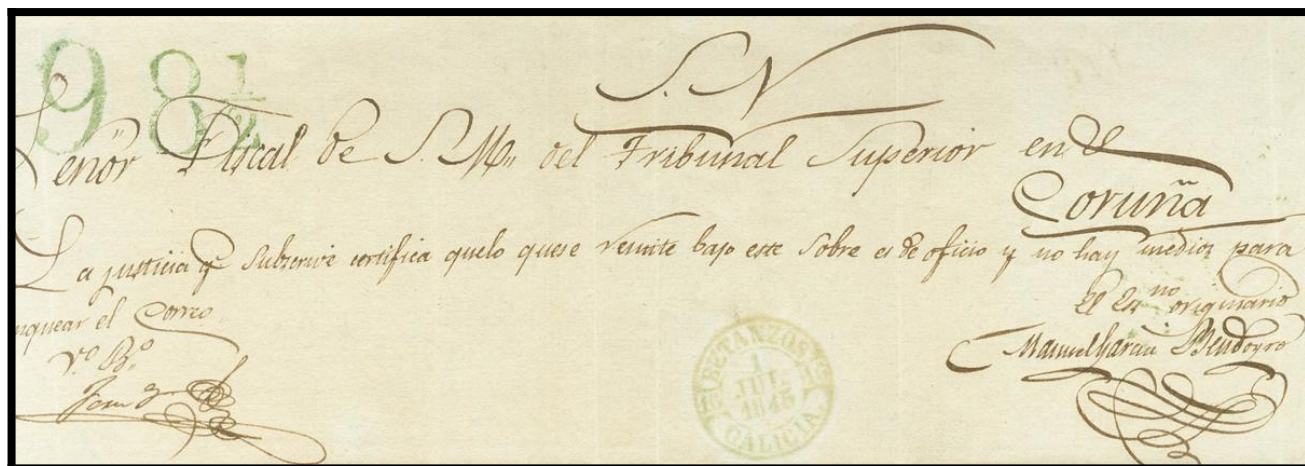 98 1/2
S. N
Señor Fiscal de S. M. del Tribunal Superior en la
Coruña
La justicia q subscrive certifica quelo quese remite bajo este sobre es de oficio y no hay medios para
nquear el Correo
El Es.no originario
V.o B.o
Manuel Garcia
BETANZOS
1
JUL.
1845
GALICIA